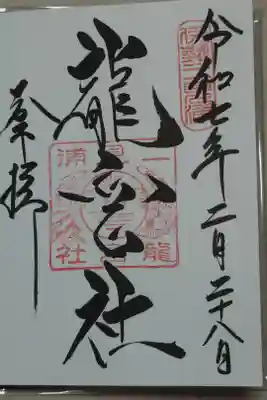 令和七年二月二十八日
龍宮社
奉拝
二見浦
龍宮社